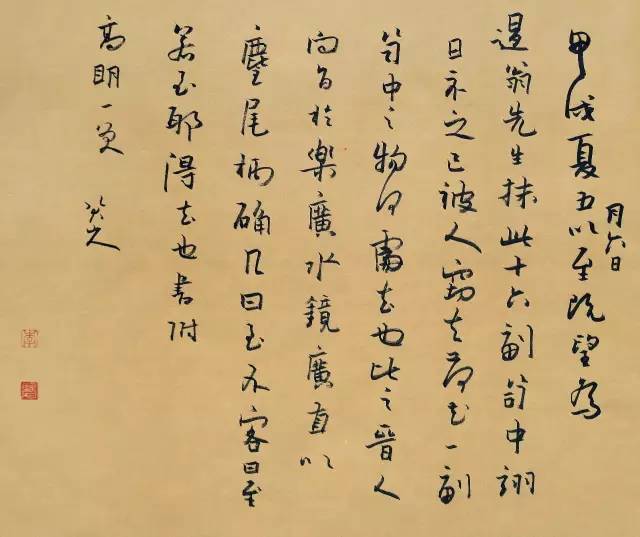 甲戌夏五以至既望為
月六日
退翁先生抹此十六副笥中翊
日示之已被人竊去荷花一副
笥中之物何處去也比之晉人
問旨於樂廣水鏡廣直以
麈尾柄确几曰至不客曰至
若至耶得去也書附
高明一笑 八大山人